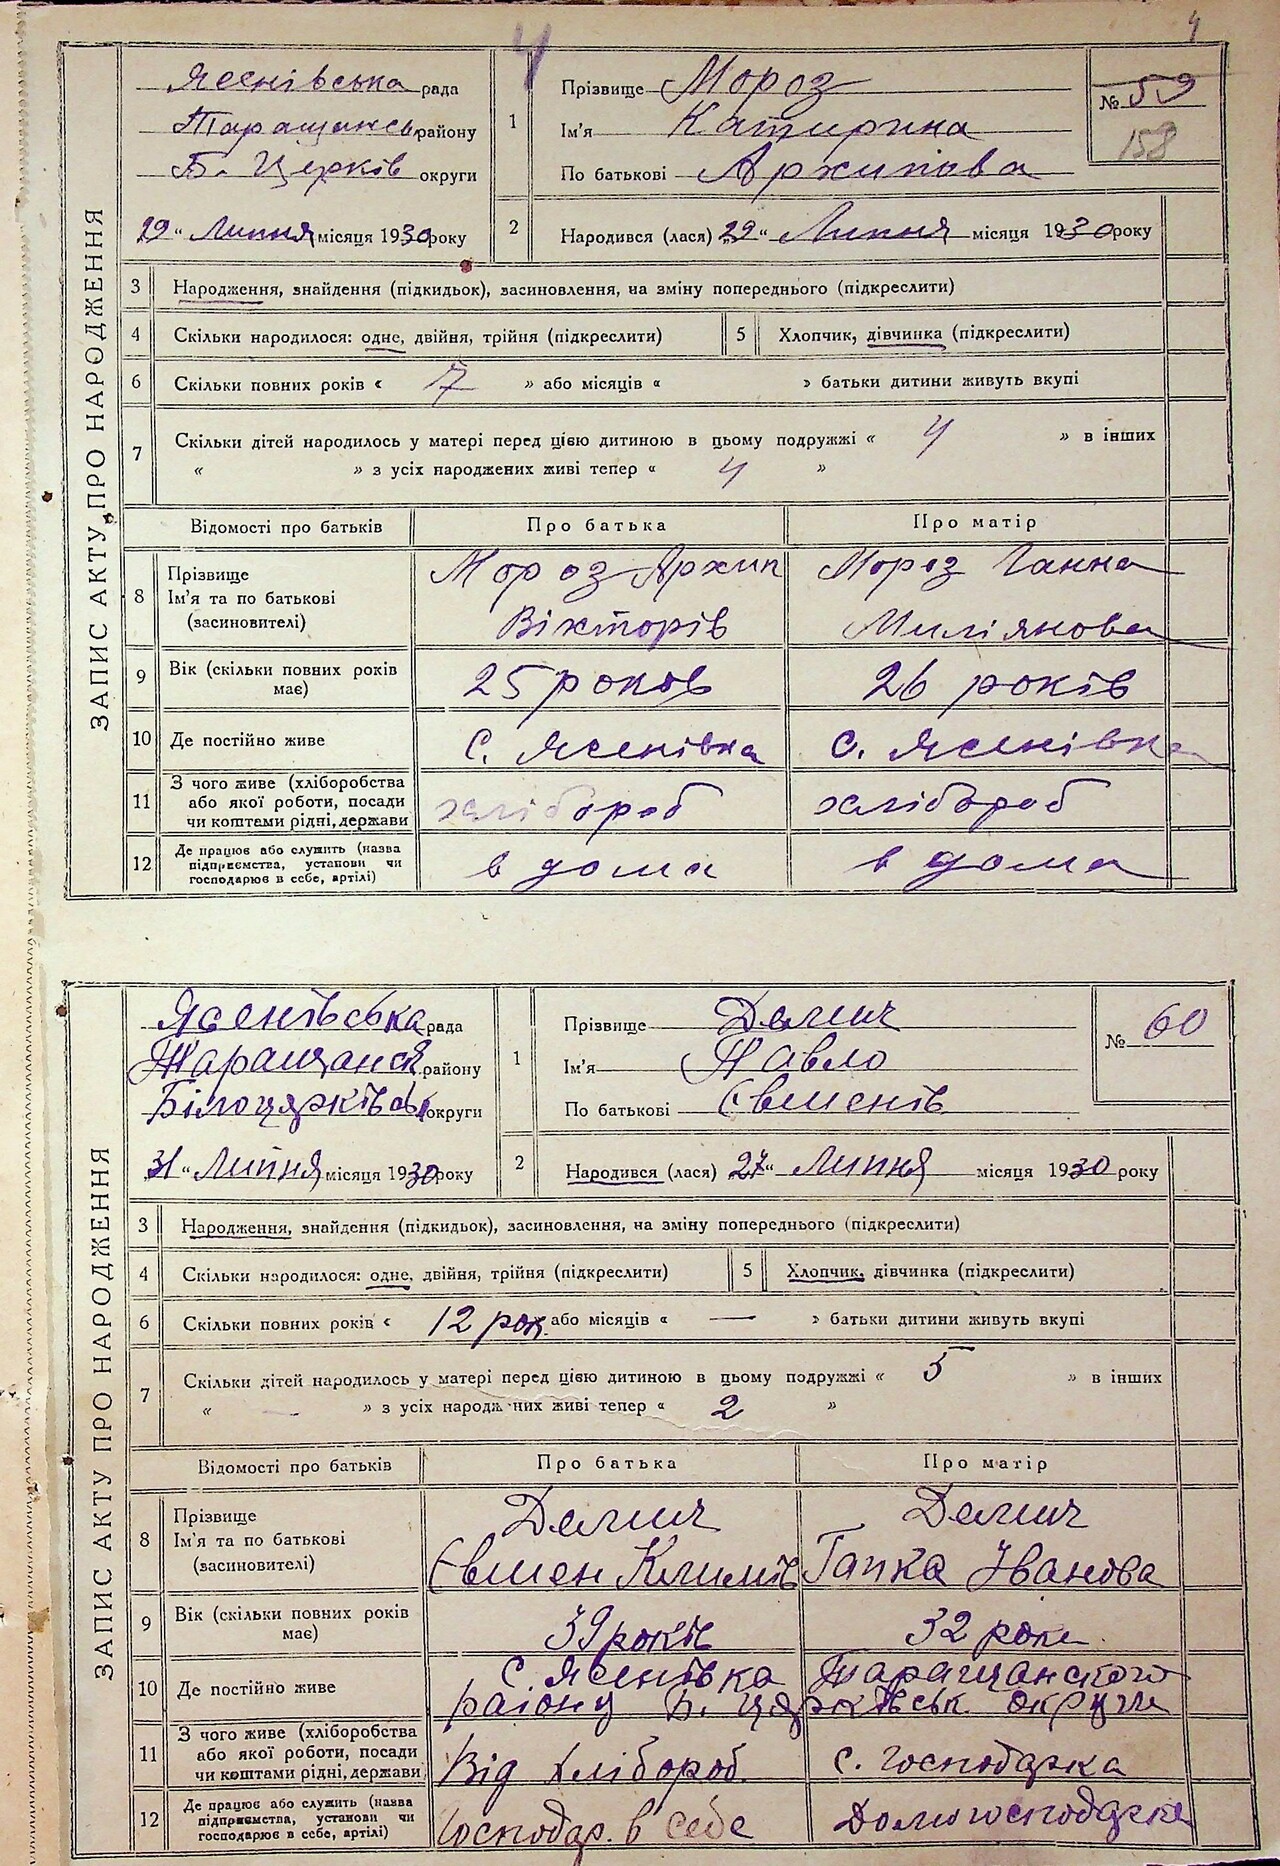 4
4
ЗАПИС АКТУ ПРО НАРОДЖЕННЯ
Ясенівська рада
Таращансь району
Б. Церків округи
29 " Липня місяця 1930 року
1
Прізвище Мороз
Ім'я Катирина
По батькові Архипова
№ 59
158
2
Народився (лася) 29 " Липня місяця 1930 року
3 Народження, знайдення (підкидьок), засиновлення, на зміну попереднього (підкреслити)
4 Скільки народилося: одне, двійня, трійня (підкреслити) 5 Хлопчик, дівчинка (підкреслити)
6 Скільки повних років « 7 » або місяців « » батьки дитини живуть вкупі
7 Скільки дітей народилось у матері перед цією дитиною в цьому подружжі « 4 » в інших
« » з усіх народжених живі тепер « 4 »
Відомості про батьків Про батька Про матір
8 Прізвище
Ім'я та по батькові
(засиновителі)
Мороз Архип
Вікторів
Мороз Ганна
Миліянова
9 Вік (скільки повних років
має)
25 років
26 років
10 Де постійно живе с. Ясенівка с. Ясенівка
11 З чого живе (хліборобства
або якої роботи, посади
чи коштами рідні, держави
хлібороб
хлібороб
12 Де працює або служить (назва
підприємства, установи чи
господарює в себе, артілі)
в дома
в дома
ЗАПИС АКТУ ПРО НАРОДЖЕННЯ
Ясенівська рада
Таращанськ району
Білоцярківськ округи
31 " Липня місяця 1930 року
1
Прізвище Демич
Ім'я Павло
По батькові Євменів
№ 60
2
Народився (лася) 27 " Липня місяця 1930 року
3 Народження, знайдення (підкидьок), засиновлення, на зміну попереднього (підкреслити)
4 Скільки народилося: одне, двійня, трійня (підкреслити) 5 Хлопчик, дівчинка (підкреслити)
6 Скільки повних років « 12 рок або місяців « — » батьки дитини живуть вкупі
7 Скільки дітей народилось у матері перед цією дитиною в цьому подружжі « 5 » в інших
« — » з усіх народжених живі тепер « 2 »
Відомості про батьків Про батька Про матір
8 Прізвище
Ім'я та по батькові
(засиновителі)
Демич
Євмен Климів
Демич
Гапка Іванова
9 Вік (скільки повних років
має)
39 років
32 роки
10 Де постійно живе
с. Ясенівка Таращанского
району Б. Цярківськ округи
11 З чого живе (хліборобства
або якої роботи, посади
чи коштами рідні, держави
Від хлібороб.
с. господарка
12 Де працює або служить (назва
підприємства, установи чи
господарює в себе, артілі)
Господар. в себе
Домогосподарка